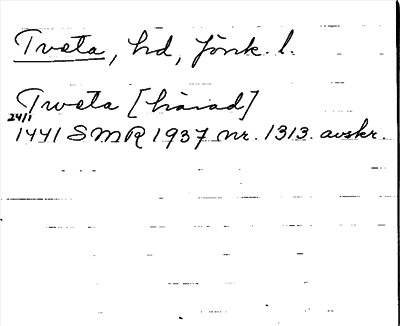 Tveta, hd, Jönk. l.
Tweta [härad]
24/1
1441 SMR 1937 nr. 1313. avskr.